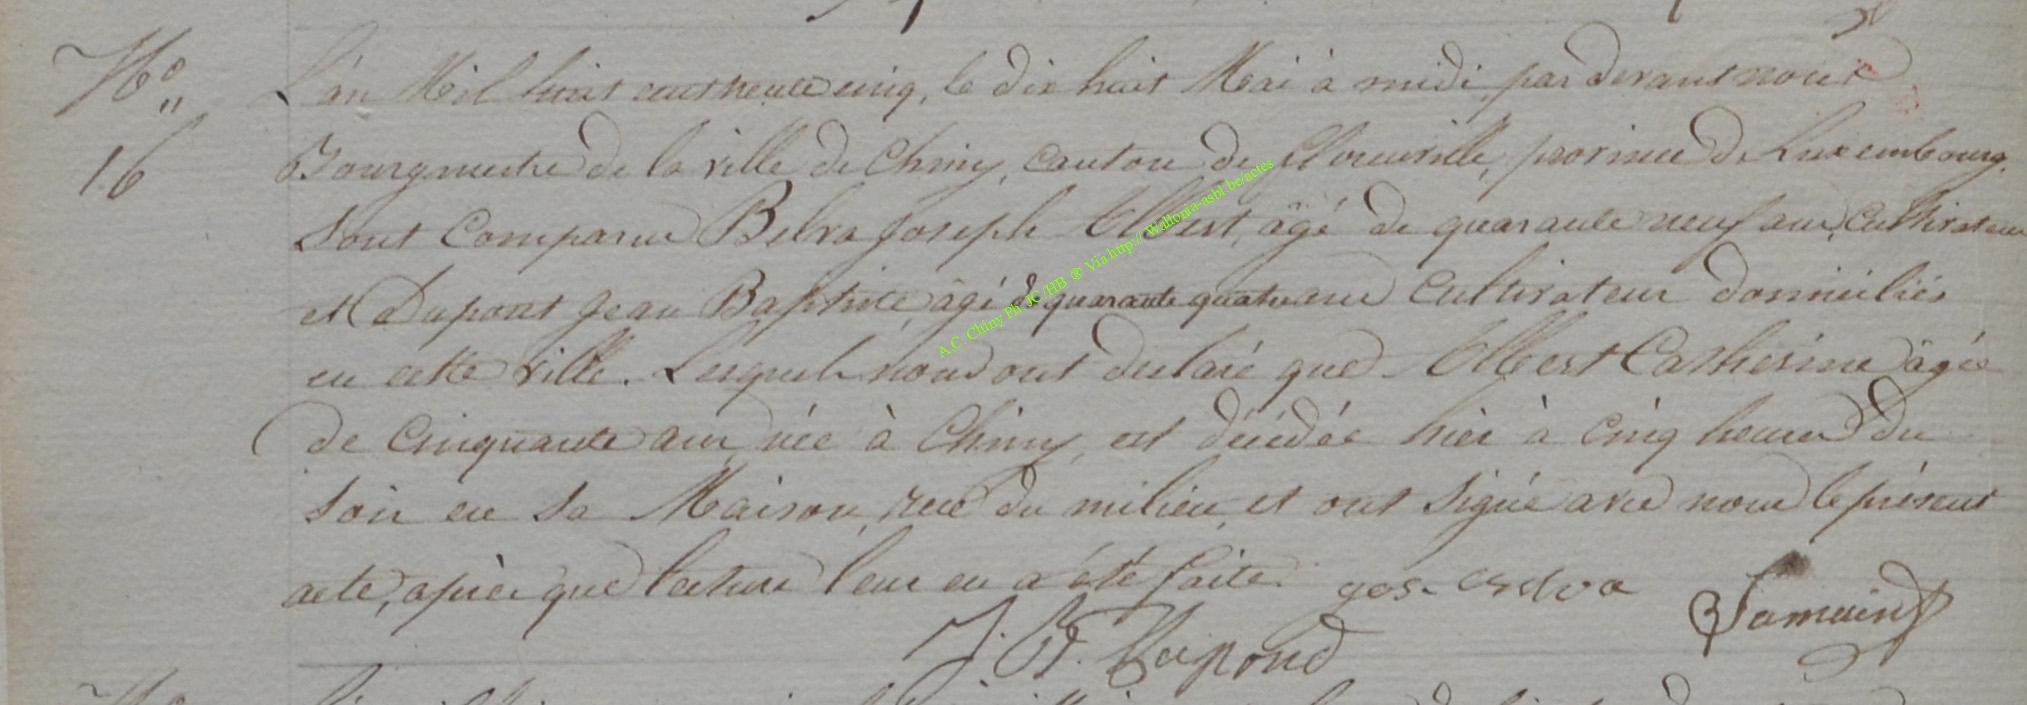 N°
16
L'an Mil huit cent trente cinq, le dix huit Mai à midi, par devant nous
Bourgmestre de la ville de Chiny, Canton de Florenville, province de Luxembourg,
Sont Comparus Belva Joseph Albert, âgé de quarante neuf ans, Cultivateur
et Dupont Jean Baptiste, âgé de quarante quatre ans Cultivateur domiciliés
en cette ville. Lesquels nous ont declaré que Albert Catherine âgée
de Cinquante ans, née à Chiny, est décédée hier à Cinq heures du
soir en sa Maison, rue du milieu, et ont Signé avec nous le présent
acte, après que lecture leur en a été faite.
J. B. Dupond
A.C. Chiny Ph. JC /HB @ Via http:// Wallonia-asbl.be/actes